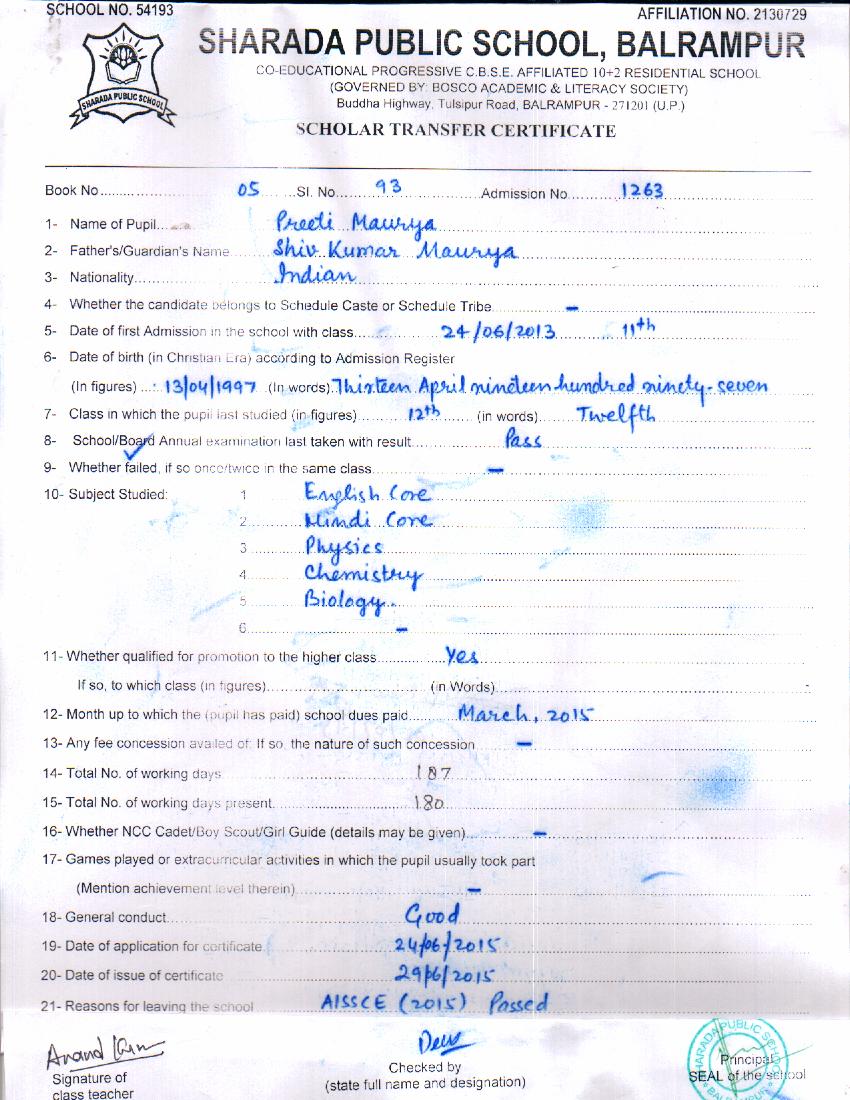 SCHOOL NO. 54193 AFFILIATION NO. 2130729
SHARADA PUBLIC SCHOOL, BALRAMPUR
CO-EDUCATIONAL PROGRESSIVE C.B.S.E. AFFILIATED 10+2 RESIDENTIAL SCHOOL
(GOVERNED BY: BOSCO ACADEMIC & LITERACY SOCIETY)
Buddha Highway, Tulsipur Road, BALRAMPUR - 271201 (U.P.)
SHARADA PUBLIC SCHOOL
SCHOLAR TRANSFER CERTIFICATE
Book No. 05 Sl. No. 93 Admission No. 1263
1- Name of Pupil Preeti Maurya
2- Father's/Guardian's Name Shiv Kumar Maurya
3- Nationality Indian
4- Whether the candidate belongs to Schedule Caste or Schedule Tribe –
5- Date of first Admission in the school with class 24/06/2013 11th
6- Date of birth (in Christian Era) according to Admission Register
(In figures) 13/04/1997 (In words) Thirteen April nineteen hundred ninety-seven
7- Class in which the pupil last studied (in figures) 12th (in words) Twelfth
8- School/Board Annual examination last taken with result Pass
9- Whether failed, if so once/twice in the same class –
10- Subject Studied: 1 English Core
2 Hindi Core
3 Physics
4 Chemistry
5 Biology
6 –
11- Whether qualified for promotion to the higher class Yes
If so, to which class (in figures) (in Words)
12- Month up to which the (pupil has paid) school dues paid March, 2015
13- Any fee concession availed of: If so, the nature of such concession –
14- Total No. of working days 187
15- Total No. of working days present 180
16- Whether NCC Cadet/Boy Scout/Girl Guide (details may be given) –
17- Games played or extracurricular activities in which the pupil usually took part
(Mention achievement level therein) –
18- General conduct Good
19- Date of application for certificate 24/06/2015
20- Date of issue of certificate 29/6/2015
21- Reasons for leaving the school AISSCE (2015) Passed
Signature of
class teacher
Checked by
(state full name and designation)
Principal
SEAL of the school
SHARADA PUBLIC SCHOOL